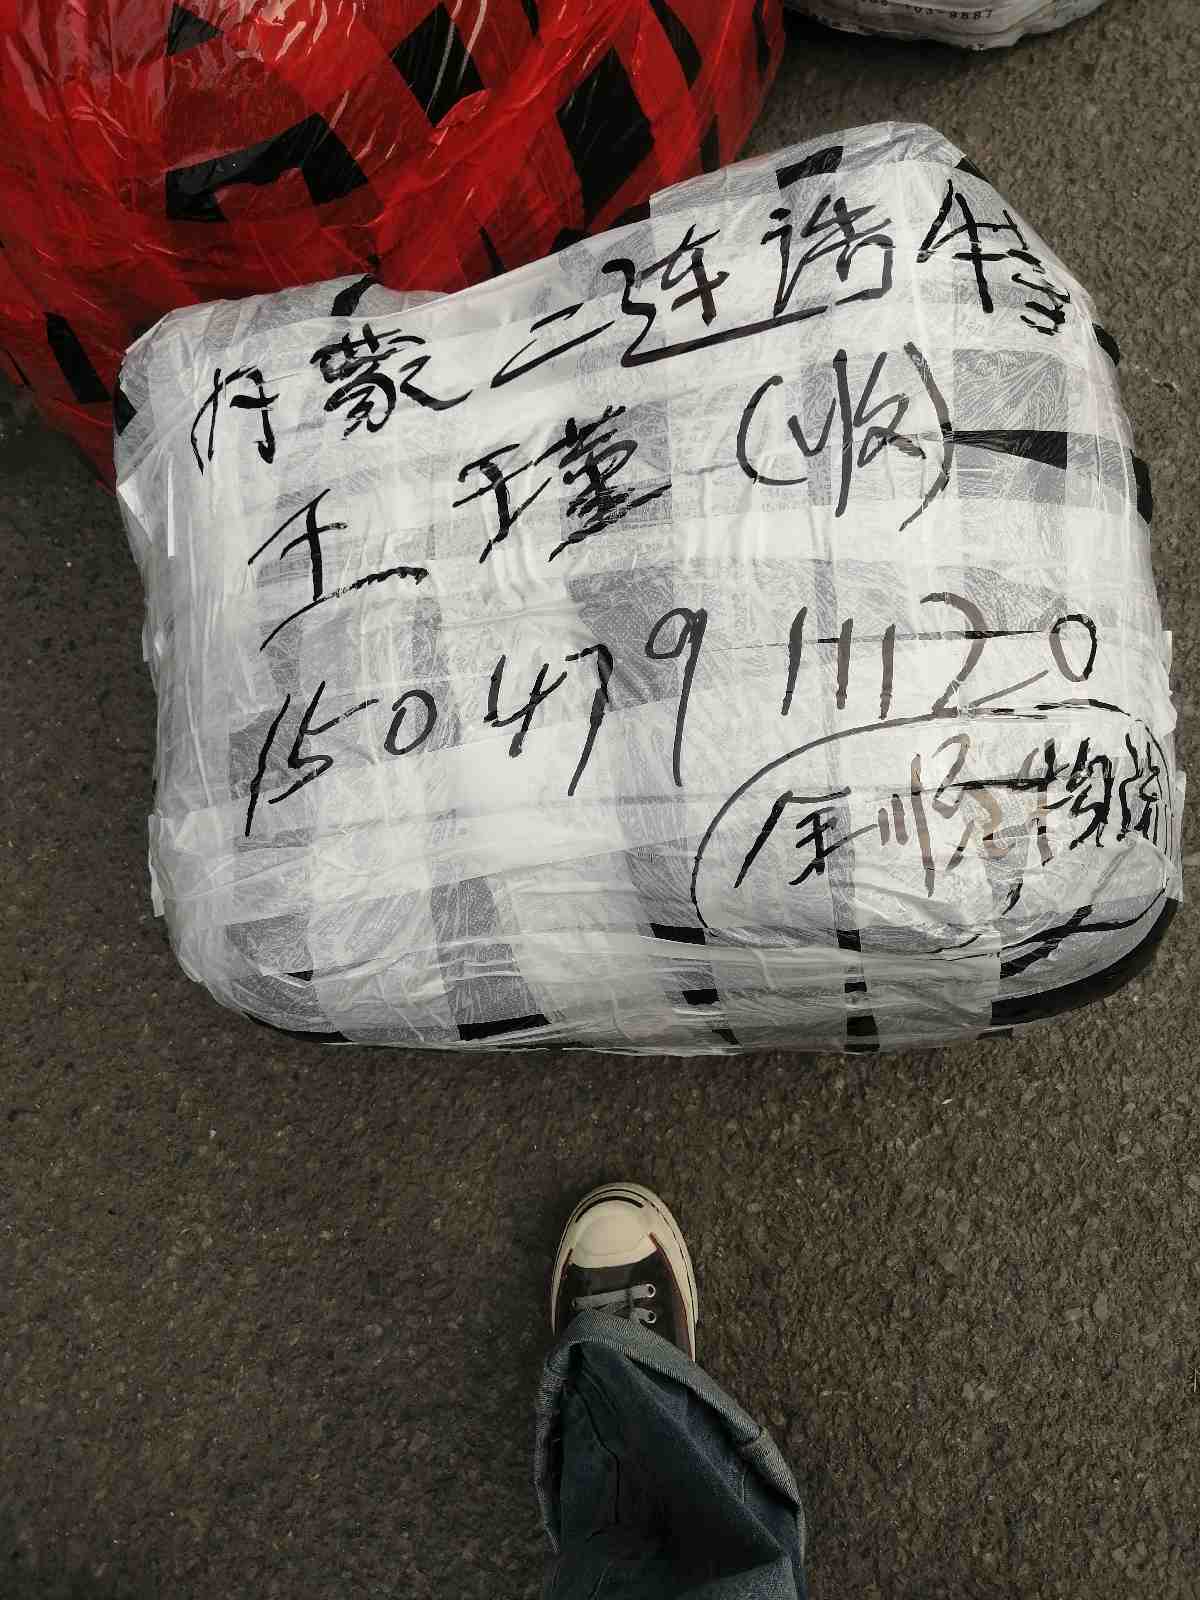 内蒙二连浩特
王瑾(收)
150479 11120
金顺物流